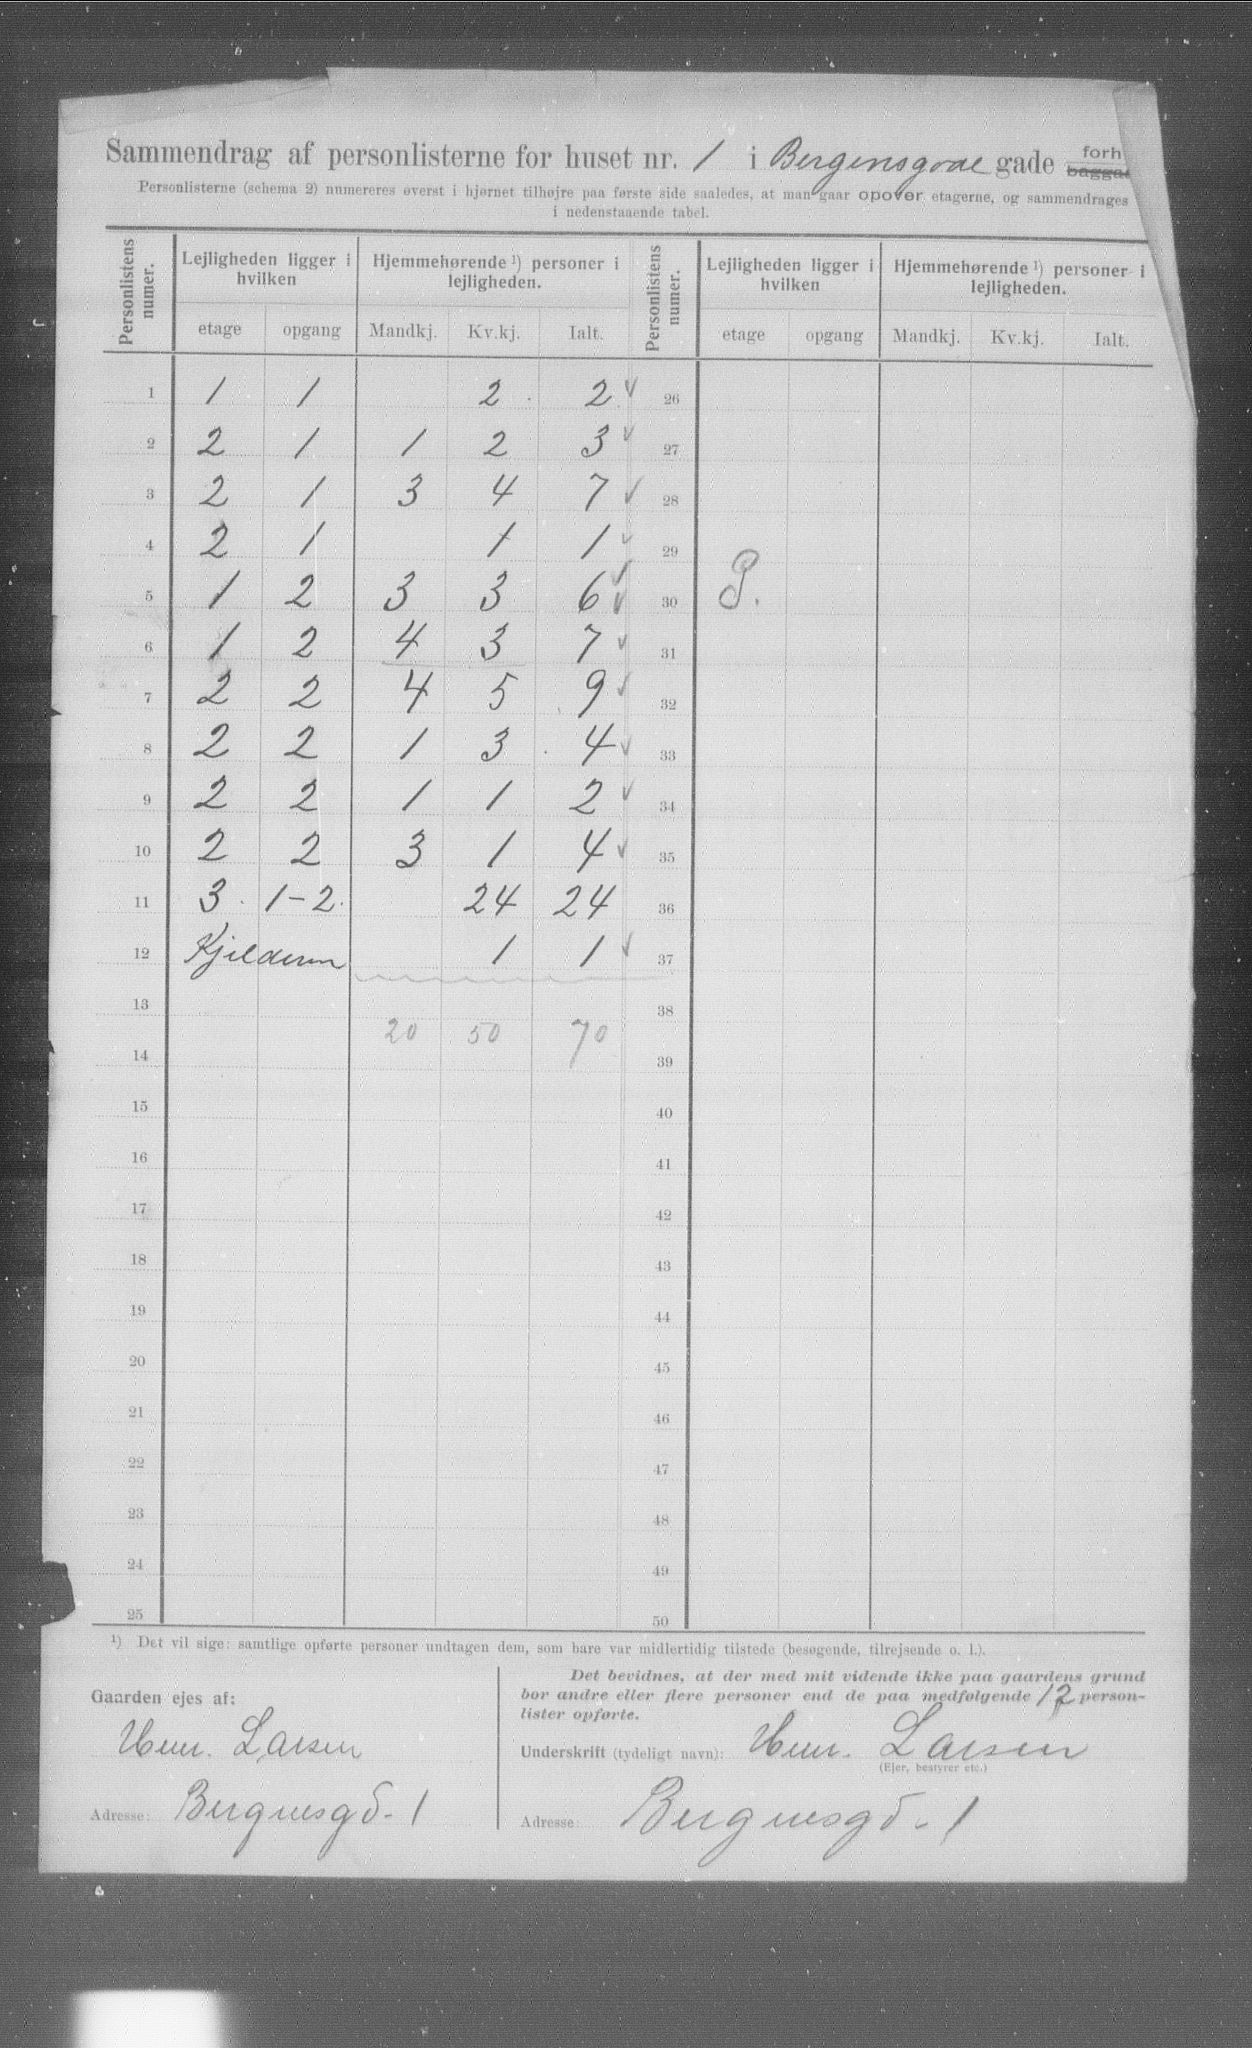 Sammendrag af personlisterne for huset nr. 1 i Bergensgade gade forh
baggaa
Personlisterne (schema 2) numereres øverst i hjørnet tilhøjre paa første side saaledes, at man gaar opover etagerne, og sammendrages
i nedenstaaende tabel.
Personlistens numer. Lejligheden ligger i hvilken Hjemmehørende ¹) personer i lejligheden. Personlistens numer. Lejligheden ligger i hvilken Hjemmehørende ¹) personer i lejligheden.
etage opgang Mandkj. Kv.kj. Ialt. etage opgang Mandkj. Kv.kj. Ialt.
1 1 1 2 2 26
2 2 1 1 2 3 27
3 2 1 3 4 7 28
4 2 1 1 1 29
5 1 2 3 3 6 30 P.
6 1 2 4 3 7 31
7 2 2 4 5 9 32
8 2 2 1 3 4 33
9 2 2 1 1 2 34
10 2 2 3 1 4 35
11 3. 1-2. 24 24 36
12 Kjelderen 1 1 37
13 38
20 50 70
14 39
15 40
16 41
17 42
18 43
19 44
20 45
21 46
22 47
23 48
24 49
25 50
¹) Det vil sige: samtlige opførte personer undtagen dem, som bare var midlertidig tilstede (besøgende, tilrejsende o. l.).
Gaarden ejes af:
Henr. Larsen
Adresse: Bergensgd. 1
Det bevidnes, at der med mit vidende ikke paa gaardens grund
bor andre eller flere personer end de paa medfølgende 12 person-
lister opførte.
Underskrift (tydeligt navn): Henr. Larsen
(Ejer, bestyrer etc.)
Adresse: Bergensgd. 1